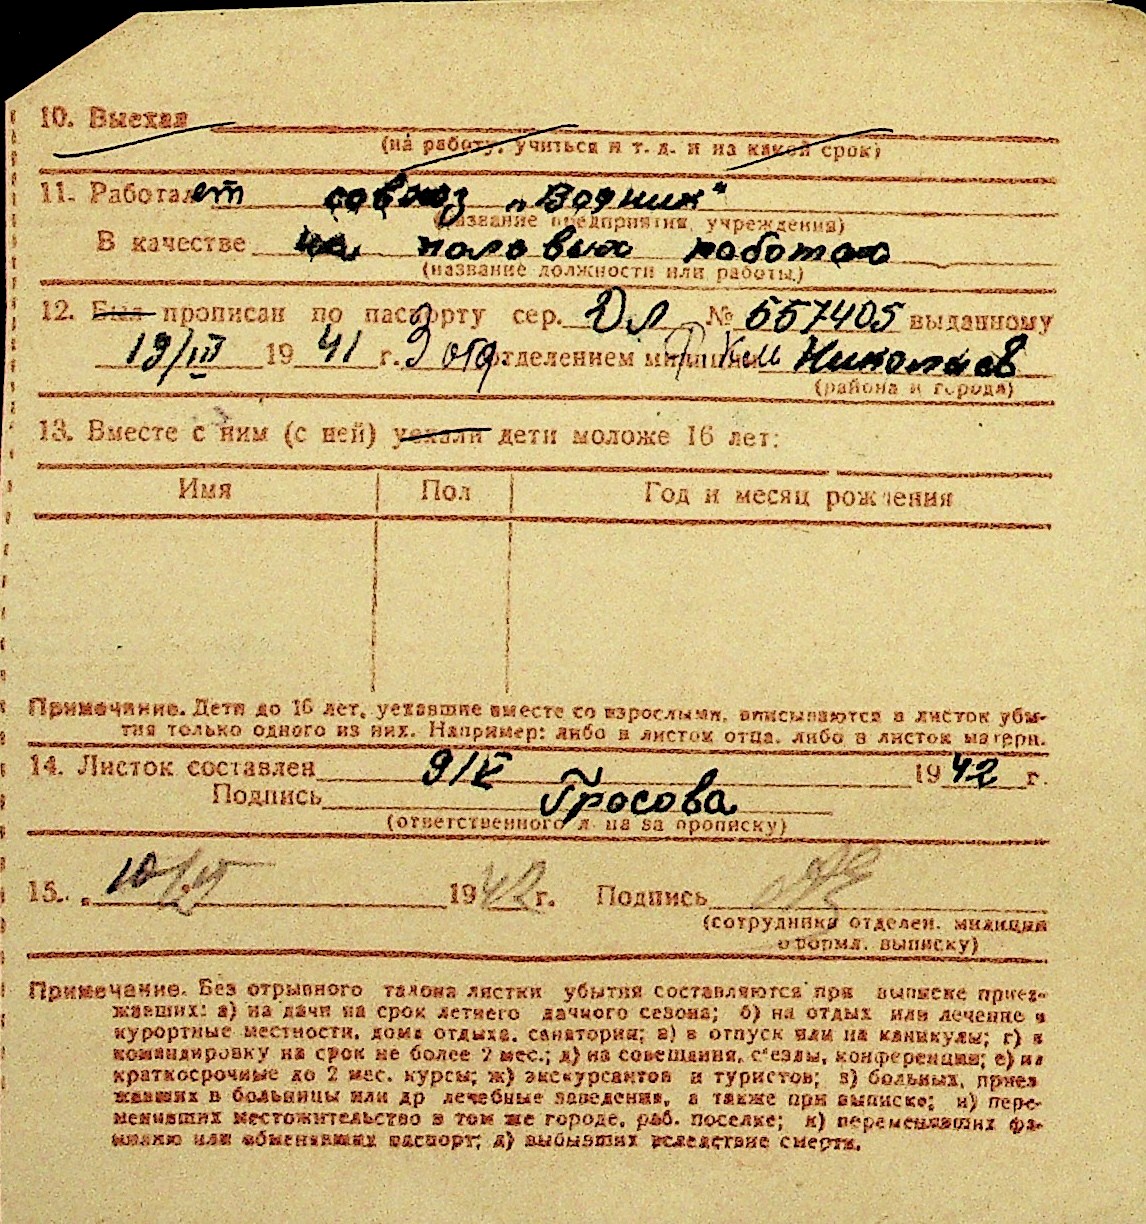 10. Выехал
(на работу, учиться и т. д. и на какой срок)
11. Работает совхоз „Водник"
(название предприятия, учреждения)
В качестве на полевых работах
(название должности или работы)
12. Был прописан по паспорту сер. № 557405 выданному
19/III 1941 г. 3 отделением милиции Николаев
(района и города)
13. Вместе с ним (с ней) уехали дети моложе 16 лет:
Имя Пол Год и месяц рождения
Примечание. Дети до 16 лет, уехавшие вместе со взрослыми, вписываются в листок убы-
тия только одного из них. Например: либо в листок отца, либо в листок матери.
14. Листок составлен 9/V 1942 г.
Подпись Гросова
(ответственного лица за прописку)
15. 10/ 1942 г. Подпись
(сотрудника отделен. милиции
оформл. выписку)
Примечание. Без отрывного талона листки убытия составляются при выписке приез-
жавших: а) на дачи на срок летнего дачного сезона; б) на отдых или лечение в
курортные местности, дома отдыха, санатории; в) в отпуск или на каникулы; г) в
командировку на срок не более 2 мес.; д) на совещания, с'езды, конференции; е) на
краткосрочные до 2 мес. курсы; ж) экскурсантов и туристов; з) больных, приез
жавших в больницы или др лечебные заведения, а также при выписке; и) пере-
менивших местожительство в том же городе, раб. поселке; к) переменивших фа-
милию или обменявших паспорт; л) выбывших вследствие смерти.